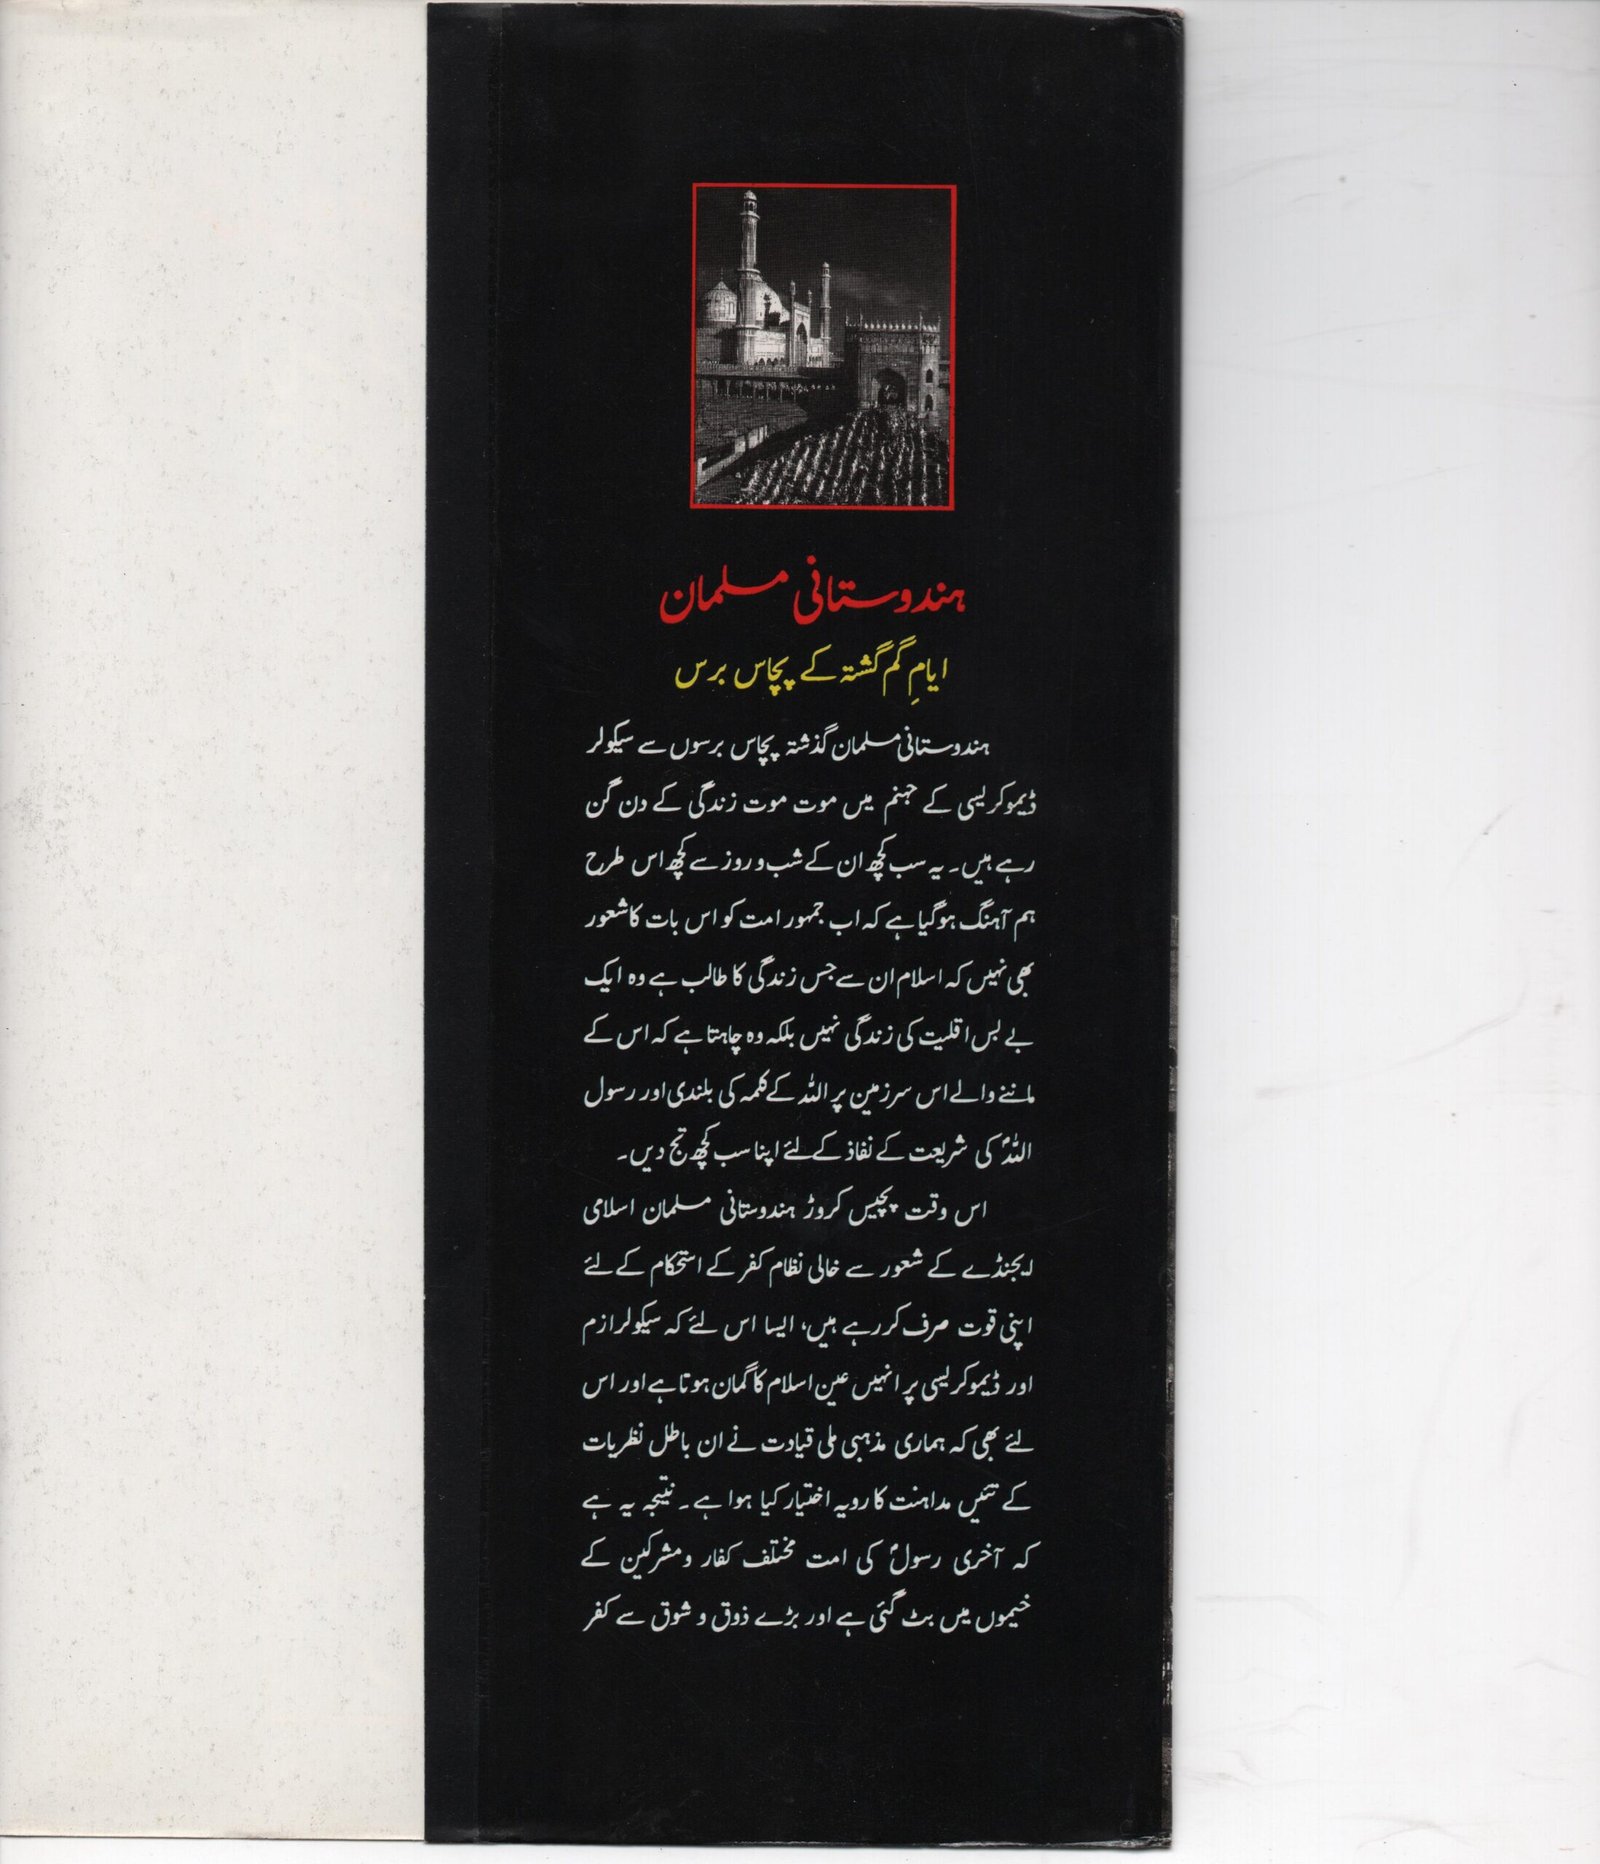 ہندوستانی مسلمان
ایامِ گم گشتہ کے پچاس برس
ہندوستانی مسلمان گذشتہ پچاس برسوں سے سیکولر
ڈیموکریسی کے جہنم میں موت موت زندگی کے دن گن
رہے ہیں۔ یہ سب کچھ ان کے شب و روز سے کچھ اس طرح
ہم آہنگ ہوگیا ہے کہ اب جمہور امت کو اس بات کا شعور
بھی نہیں کہ اسلام ان سے جس زندگی کا طالب ہے وہ ایک
بے بس اقلیت کی زندگی نہیں بلکہ وہ چاہتا ہے کہ اس کے
ماننے والے اس سرزمین پر اللہ کے کلمہ کی بلندی اور رسول
اللہؐ کی شریعت کے نفاذ کے لئے اپنا سب کچھ تج دیں۔
اس وقت پچیس کروڑ ہندوستانی مسلمان اسلامی
ایجنڈے کے شعور سے خالی نظام کفر کے استحکام کے لئے
اپنی قوت صرف کررہے ہیں، ایسا اس لئے کہ سیکولرازم
اور ڈیموکریسی پر انہیں عین اسلام کا گمان ہوتا ہے اور اس
لئے بھی کہ ہماری مذہبی ملی قیادت نے ان باطل نظریات
کے تئیں مداہنت کا رویہ اختیار کیا ہوا ہے۔ نتیجہ یہ ہے
کہ آخری رسولؐ کی امت مختلف کفار و مشرکین کے
خیموں میں بٹ گئی ہے اور بڑے ذوق و شوق سے کفر